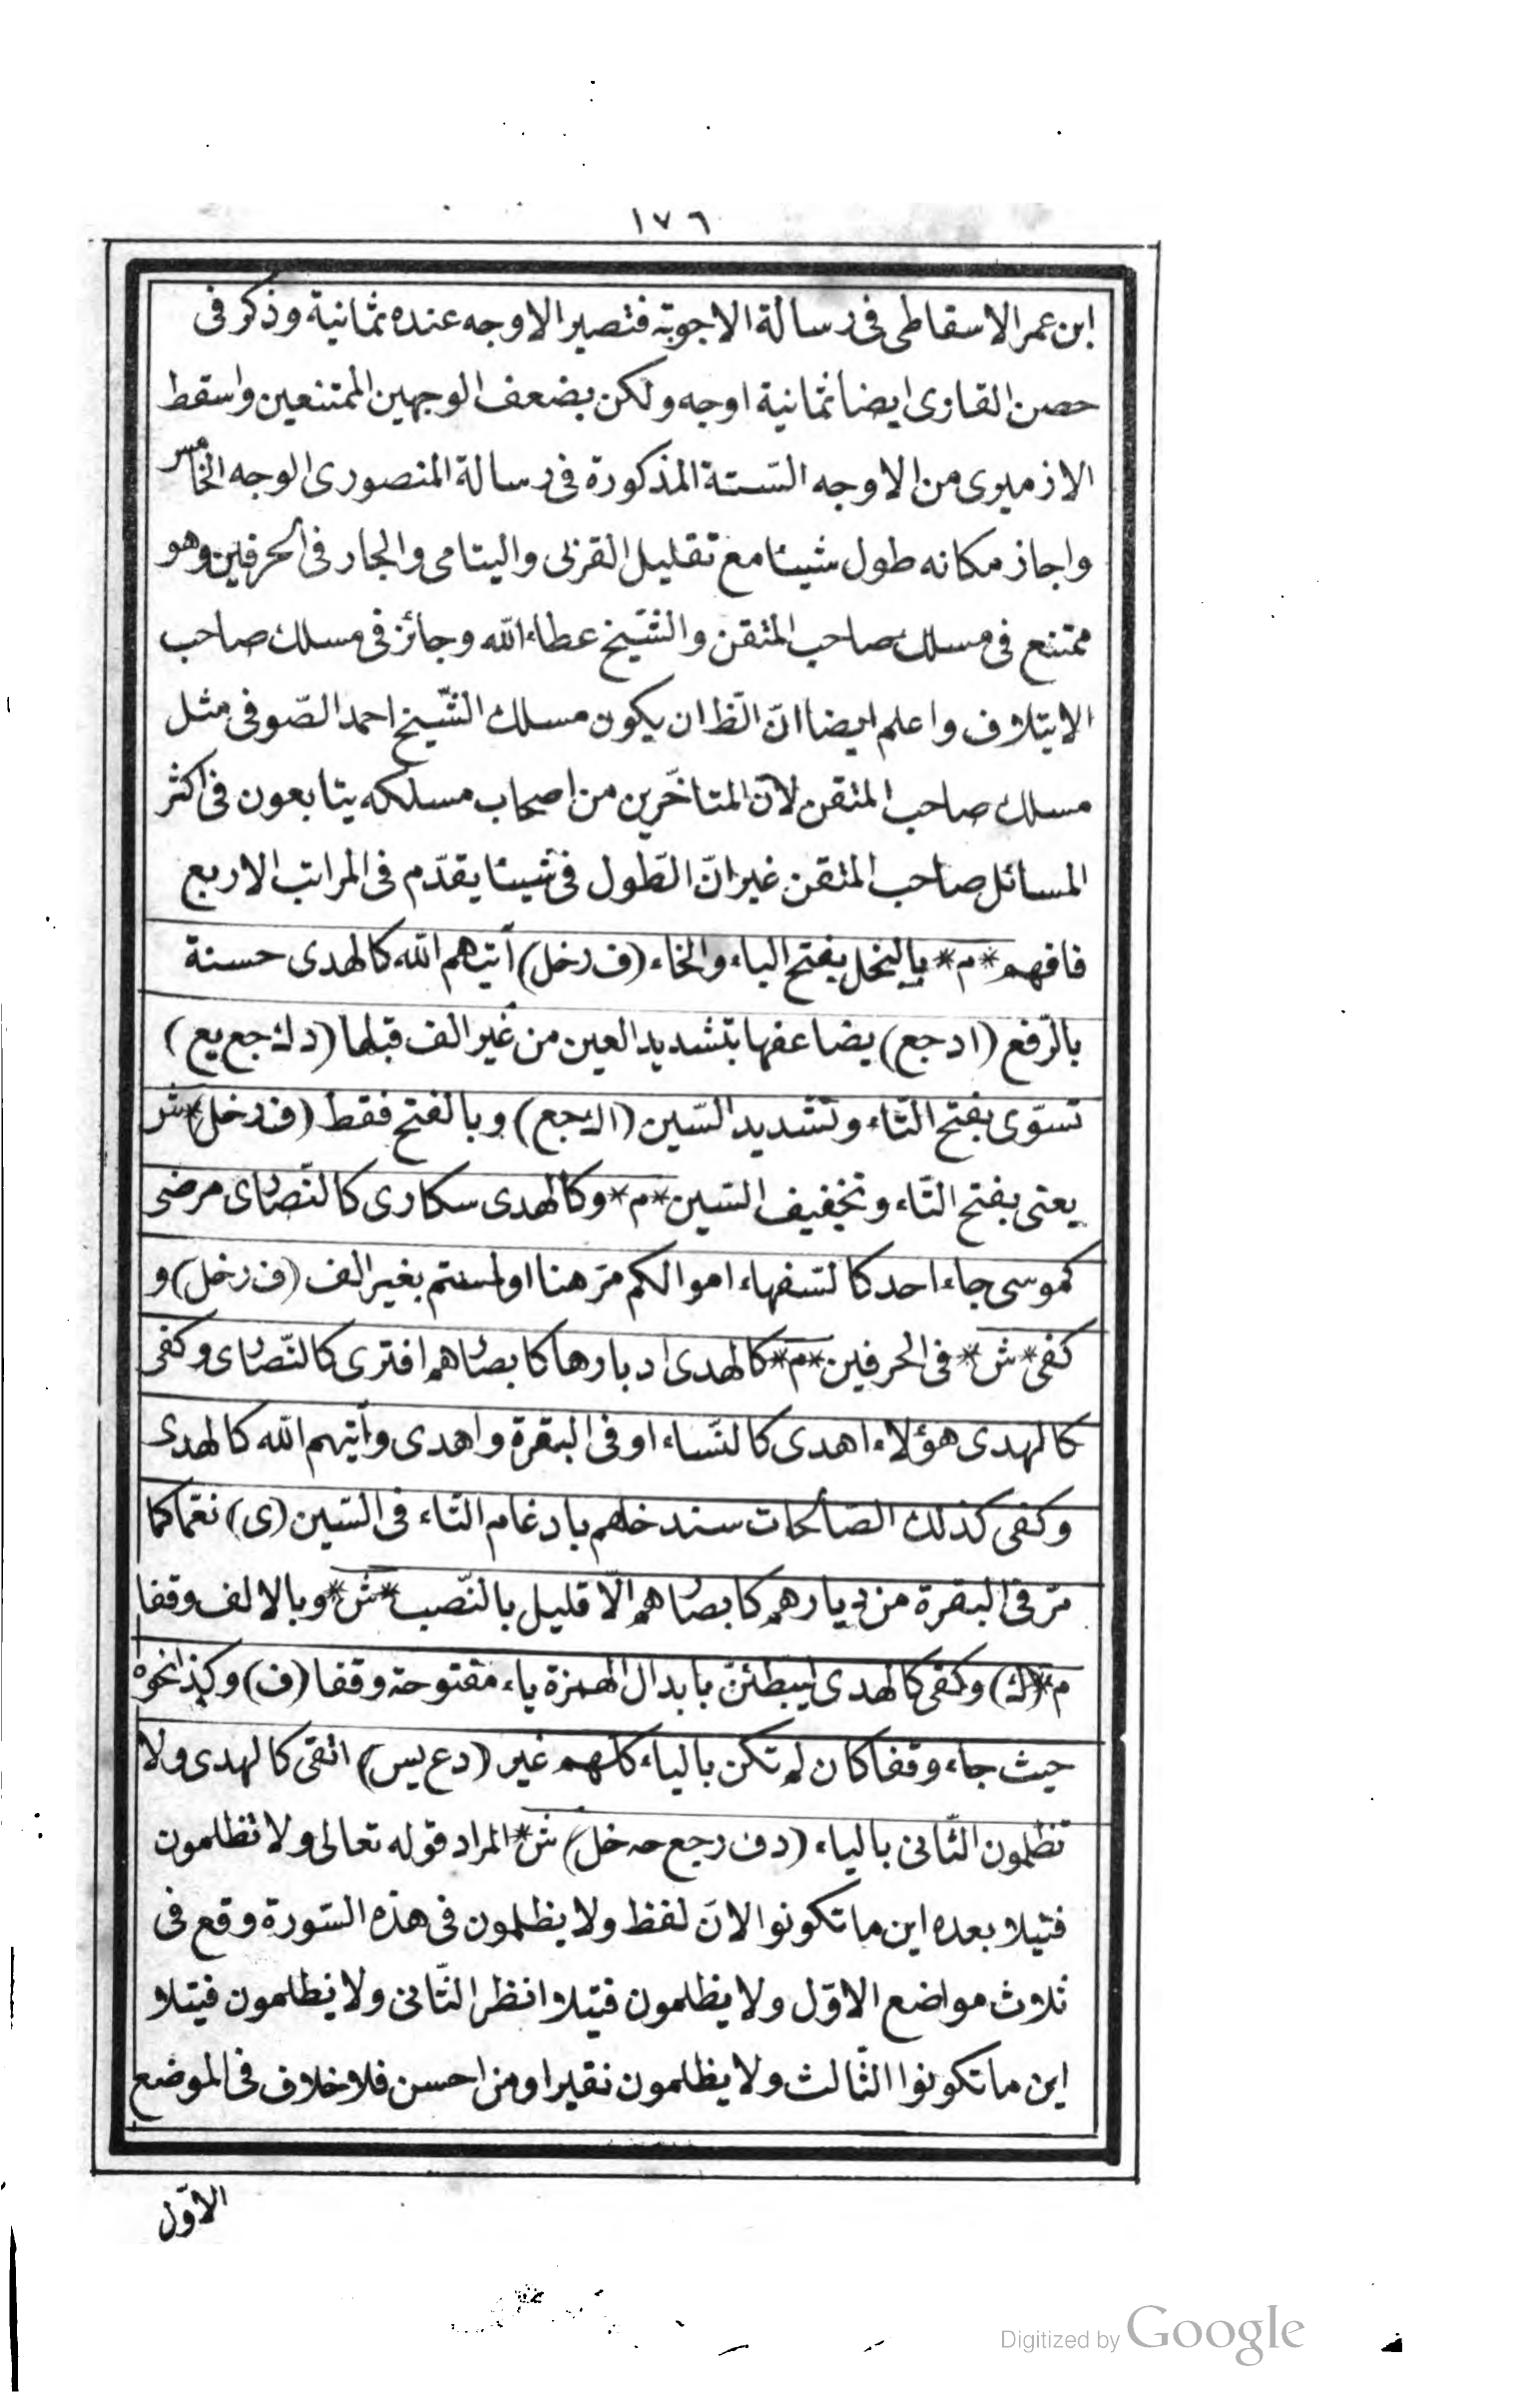 ١٧٦
ابن عمر الاسقاطى فى رسالة الاجوبة فتصير الاوجه عنده ثمانية وذكر فى
حصن القارى ايضا ثمانية اوجه ولكن بضعف الوجهين الممتنعين واسقط
الازميرى من الاوجه الستة المذكورة فى رسالة المنصورى الوجه الخامس
واجاز مكانه طول شيئا مع تقليل القربى واليتامى والجار فى الحرفين وهو
ممتنع فى مسلك صاحب المتقن والشّيخ عطاء الله وجائز فى مسلك صاحب
الايتلاف واعلم ايضا انّ الظ ان يكون مسلك الشّيخ احمد الصّوفى مثل
مسلك صاحب المتقن لانّ المتاخّرين من اصحاب مسلكه يتابعون فى اكثر
المسائل صاحب المتقن غير انّ الطّول فى شيئا يقدّم فى المراتب الاربع
فافهم * م * بالبخل بفتح الباء والخاء (ف رخل) آتيهم الله كالهدى حسنة
بالرّفع (ا د جع) يضاعفها بتشديد العين من غير الف قبلها (د ك جع يع)
تسوّى بفتح التّاء وتشديد السّين (اك جع) وبالفتح فقط (ف رخل) * ش
يعنى بفتح التّاء وتخفيف السّين * م * وكالهدى سكارى كالنّصارى مرضى
كموسى جاء احد كالسّفهاء اموالكم مرّ هنا اولمستم بغير الف (ف رخل) و
كفى * ش * فى الحرفين * م * كالهدى ادبارها كابصارهم افترى كالنّصارى وكفى
كالهدى هؤلاء اهدى كالنّساء او فى البقرة واهدى وآتيهم الله كالهدى
وكفى كذلك الصّالحات سندخلهم بادغام التّاء فى السّين (ى) نعمّا كما
مرّ فى البقرة من دياركم كابصارهم الّا قليل بالنّصب * ش * وبالالف وقفا
م * (ك) وكفى كالهدى ليبطّئنّ بابدال الهمزة ياء مفتوحة وقفا (ف) وكذا نحوه
حيث جاء وقفا كان لم تكن بالياء كلّهم غير (د ع يس) اتقى كالهدى ولا
تظلمون الثّانى بالياء (د ف ر جع حه خل) ش * المراد قوله تعالى ولا تظلمون
فتيلا بعده اين ما تكونوا لانّ لفظ ولا يظلمون فى هذه السّورة وقع فى
ثلاث مواضع الاوّل ولا يظلمون فتيلا انظر الثّانى ولا يظلمون فتيلا
اين ما تكونوا الثّالث ولا يظلمون نقيرا ومن احسن فلا خلاف فى الموضع
الاوّل
Digitized by Google